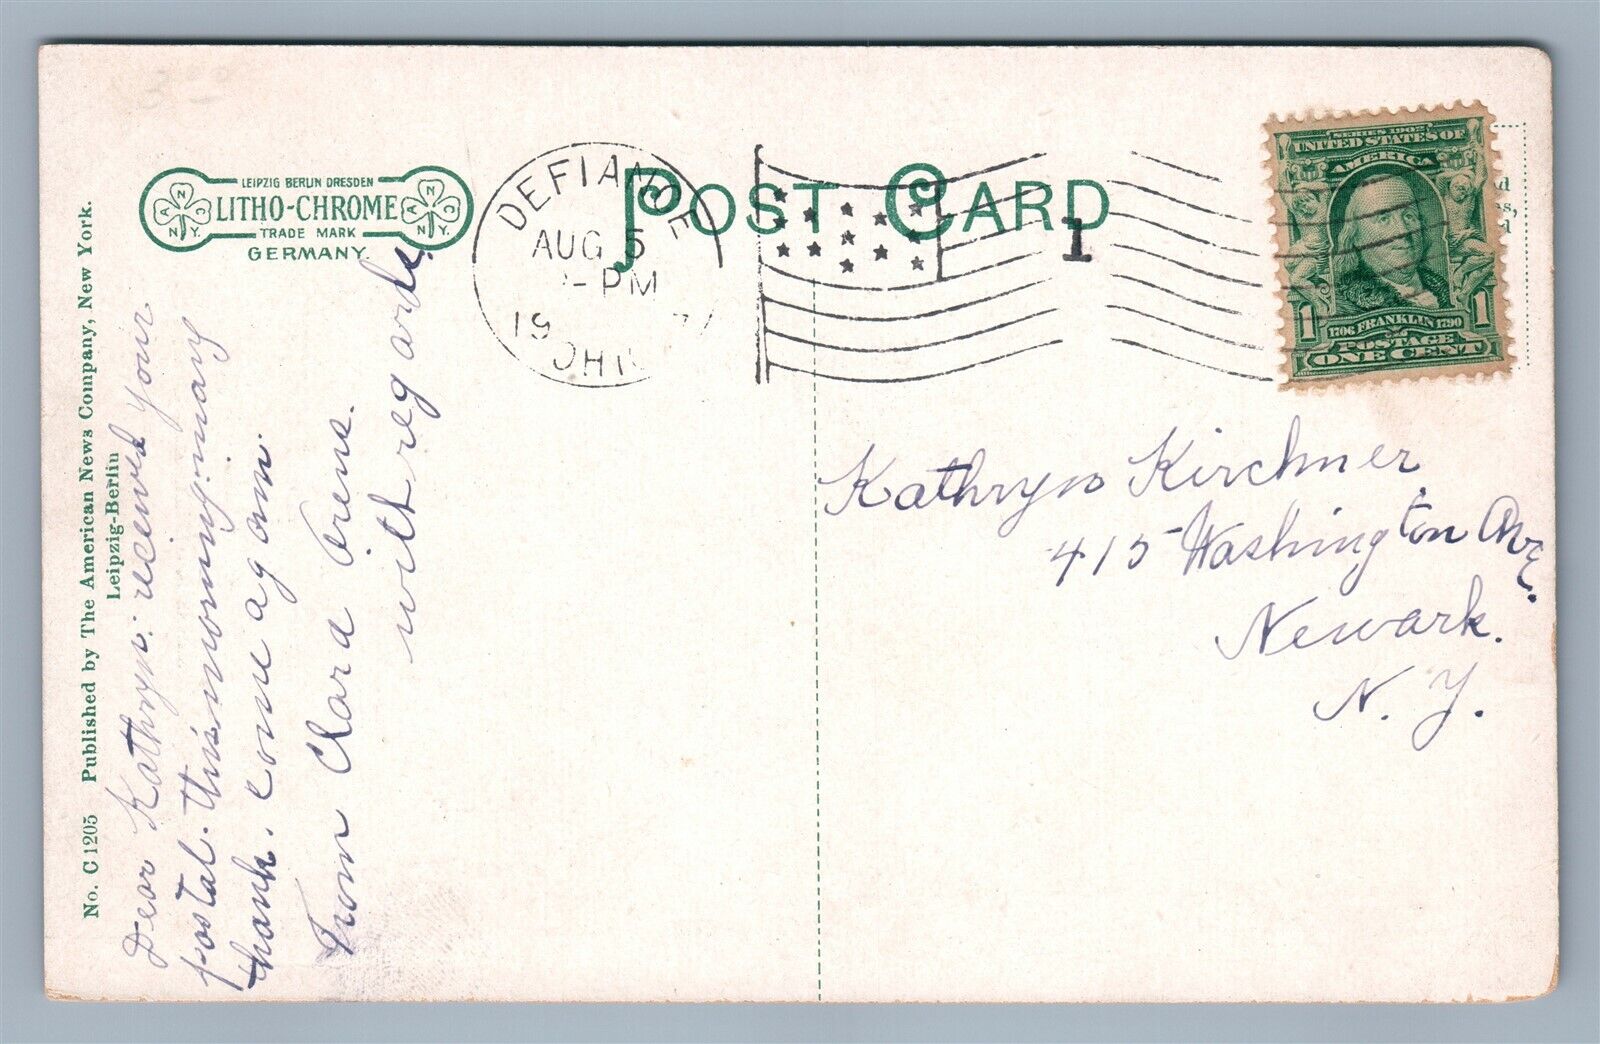 3.00
LEIPZIG BERLIN DRESDEN
LITHO-CHROME
TRADE MARK
GERMANY.
ANC
N.Y.
ANC
N.Y.
POST CARD
DEFIANCE
AUG 5
-PM
19
OHIO
1
SERIES 1902
UNITED STATES OF
AMERICA
1 1
1706 FRANKLIN 1790
POSTAGE
ONE CENT
No. C 1205 Published by The American News Company, New York.
Leipzig-Berlin
Dear Kathryn: recieved your
postal. this morning. many
thank. come agan.
From Clara Arens.
with regards.
Kathryn Kirchner
415 Washington Ave.
Newark.
N. Y.